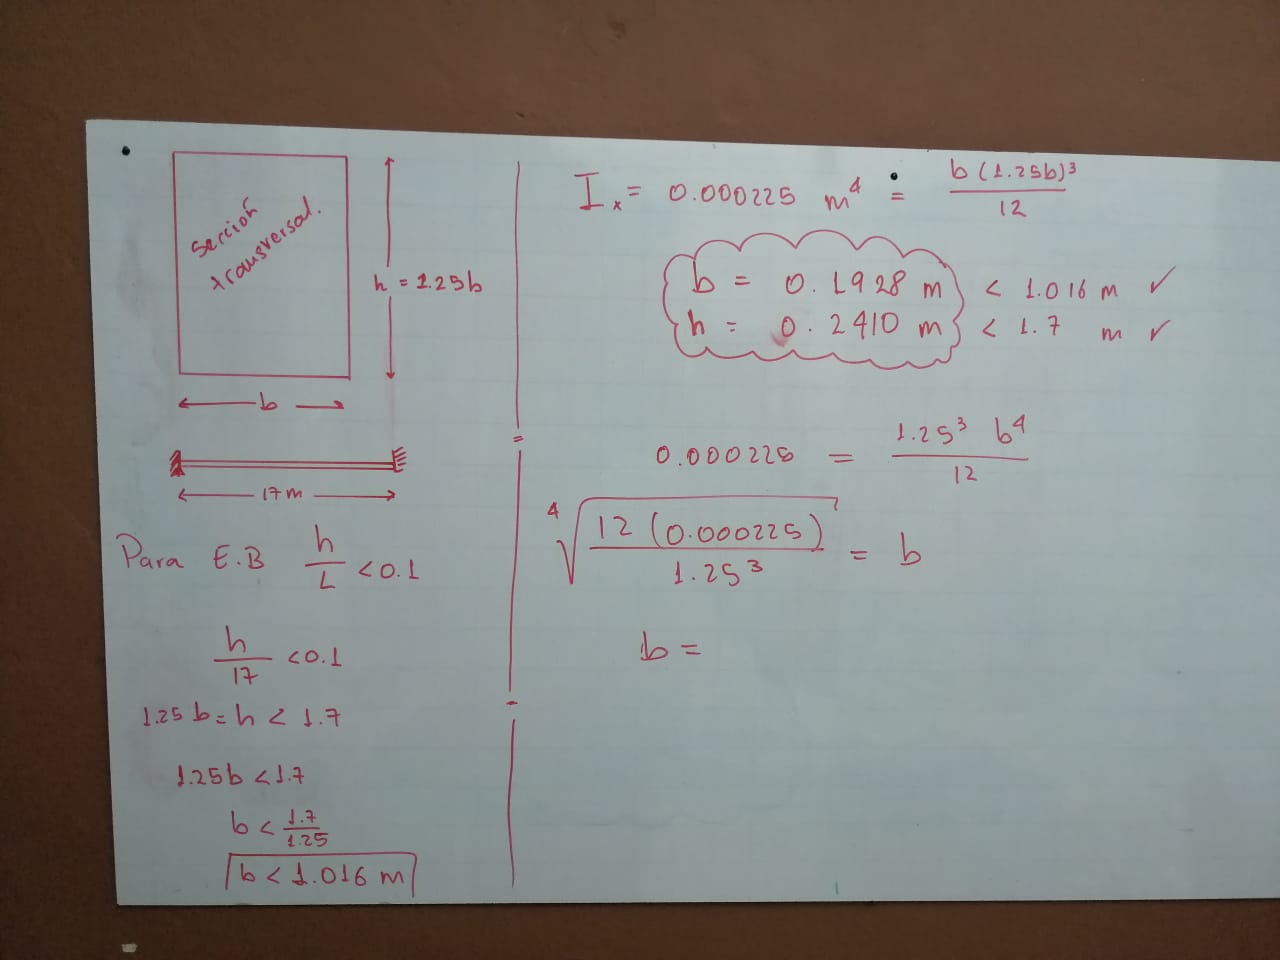 Sección
transversal.
h = 1.25b
b
17 m
Para E.B h/L < 0.1
h/17 < 0.1
1.25 b = h < 1.7
1.25b < 1.7
b < 1.7/1.25
b < 1.016 m
Iₓ = 0.000225 m⁴ = b (1.25b)³/12
b = 0.1928 m < 1.016 m ✓
h = 0.2410 m < 1.7 m ✓
0.000225 = 1.25³ b⁴/12
⁴√(12 (0.000225)/1.25³) = b
b =